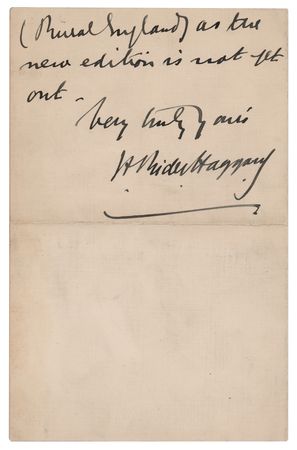 (Rural England) as the
new edition is not yet
out -
Very truly yours
H Rider Haggard